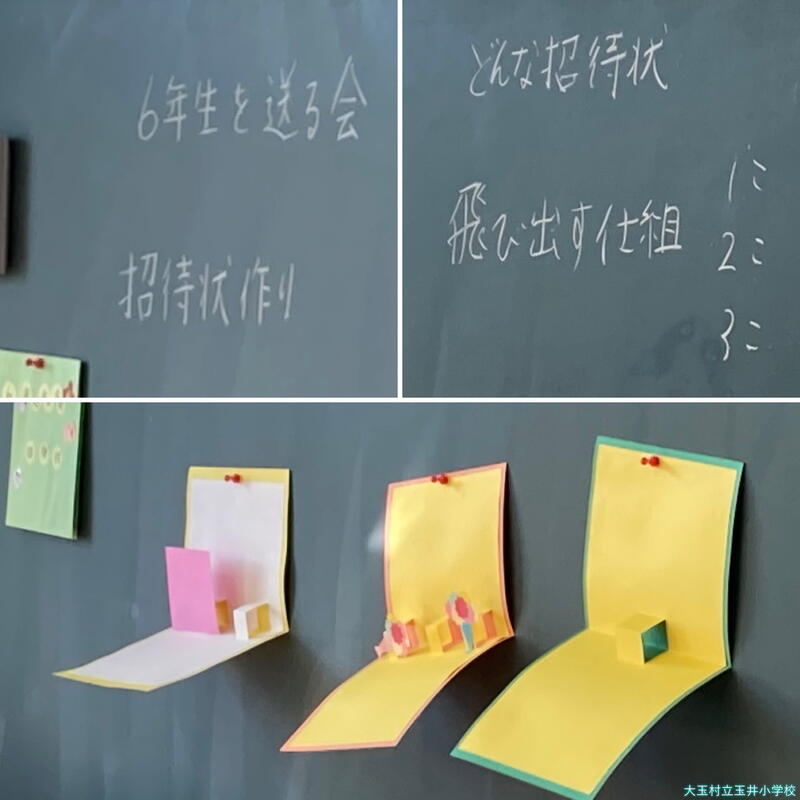 6年生を送る会
招待状作り
どんな招待状
飛び出す仕組
1こ
2こ
3こ
大玉村立玉井小学校